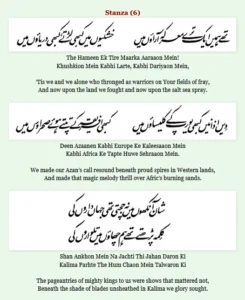 Stanza (6)
تھے ہمیں ایک ترے معرکہ آراؤں میں
خشکیوں میں کبھی لڑتے کبھی دریاؤں میں
The Hameen Ek Tire Maarka Aaraaon Mein!
Khushkion Mein Kabhi Larte, Kabhi Dariyaon Mein,
'Tis we and we alone who thronged as warriors on Your fields of fray,
And now upon the land we fought and now upon the salt sea spray.
دیں اذانیں کبھی یورپ کے کلیساؤں میں
کبھی افریقہ کے تپتے ہوئے صحراؤں میں
Deen Azaanen Kabhi Europe Ke Kaleesaaon Mein
Kabhi Africa Ke Tapte Huwe Sehraaon Mein.
We made our Azan's call resound beneath proud spires in Western lands,
And made that magic melody thrill over Afric's burning sands.
شان آنکھوں میں نہ جچتی تھی جہاں داروں کی
کلمہ پڑھتے تھے ہم چھاؤں میں تلواروں کی
Shan Ankhon Mein Na Jachti Thi Jahan Daron Ki
Kalima Parhte The Hum Chaon Mein Talwaron Ki
The pageantries of mighty kings to us were shows that mattered not,
Beneath the shade of blades unsheathed in Kalima we glory sought.